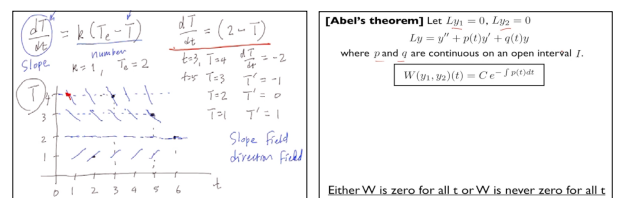 dT/dt = k (Te - T)
Slope
number
k = 1, Te = 2
dT/dt = (2 - T)
t=3, T=4 dT/dt = -2
t=5 T=3 T' = -1
T=2 T' = 0
T=1 T' = 1
Slope Field
direction Field
T
4
3
2
1
0 1 2 3 4 5 6 t
[Abel's theorem] Let Ly₁ = 0, Ly₂ = 0
Ly = y'' + p(t)y' + q(t)y
where p and q are continuous on an open interval I.
W(y₁, y₂)(t) = C e^{-∫ p(t)dt}
Either W is zero for all t or W is never zero for all t